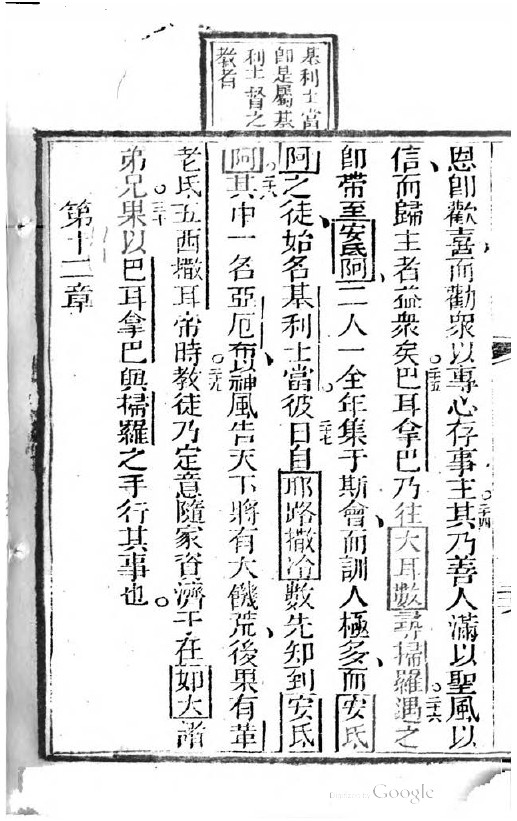 基利士當
卽是屬基
利士督之
教者
恩卽歡喜而勸衆以專心存事主。二四其乃善人滿以聖風以
信而歸主者益衆矣。二五巴耳拿巴乃往大耳數尋掃羅。二六遇之
卽帶至安氐阿二人一全年集于斯會而訓人極多而安氐
阿之徒始名基利士當。二七彼日自耶路撒冷數先知到安氐
阿。二八其中一名亞厄布以神風告天下將有大饑荒後果有革
老氐五西撒耳帝時。二九教徒乃定意隨家資濟于在如大諸
弟兄。三十果以巴耳拿巴與掃羅之手行其事也。
第十二章
Digitized by Google